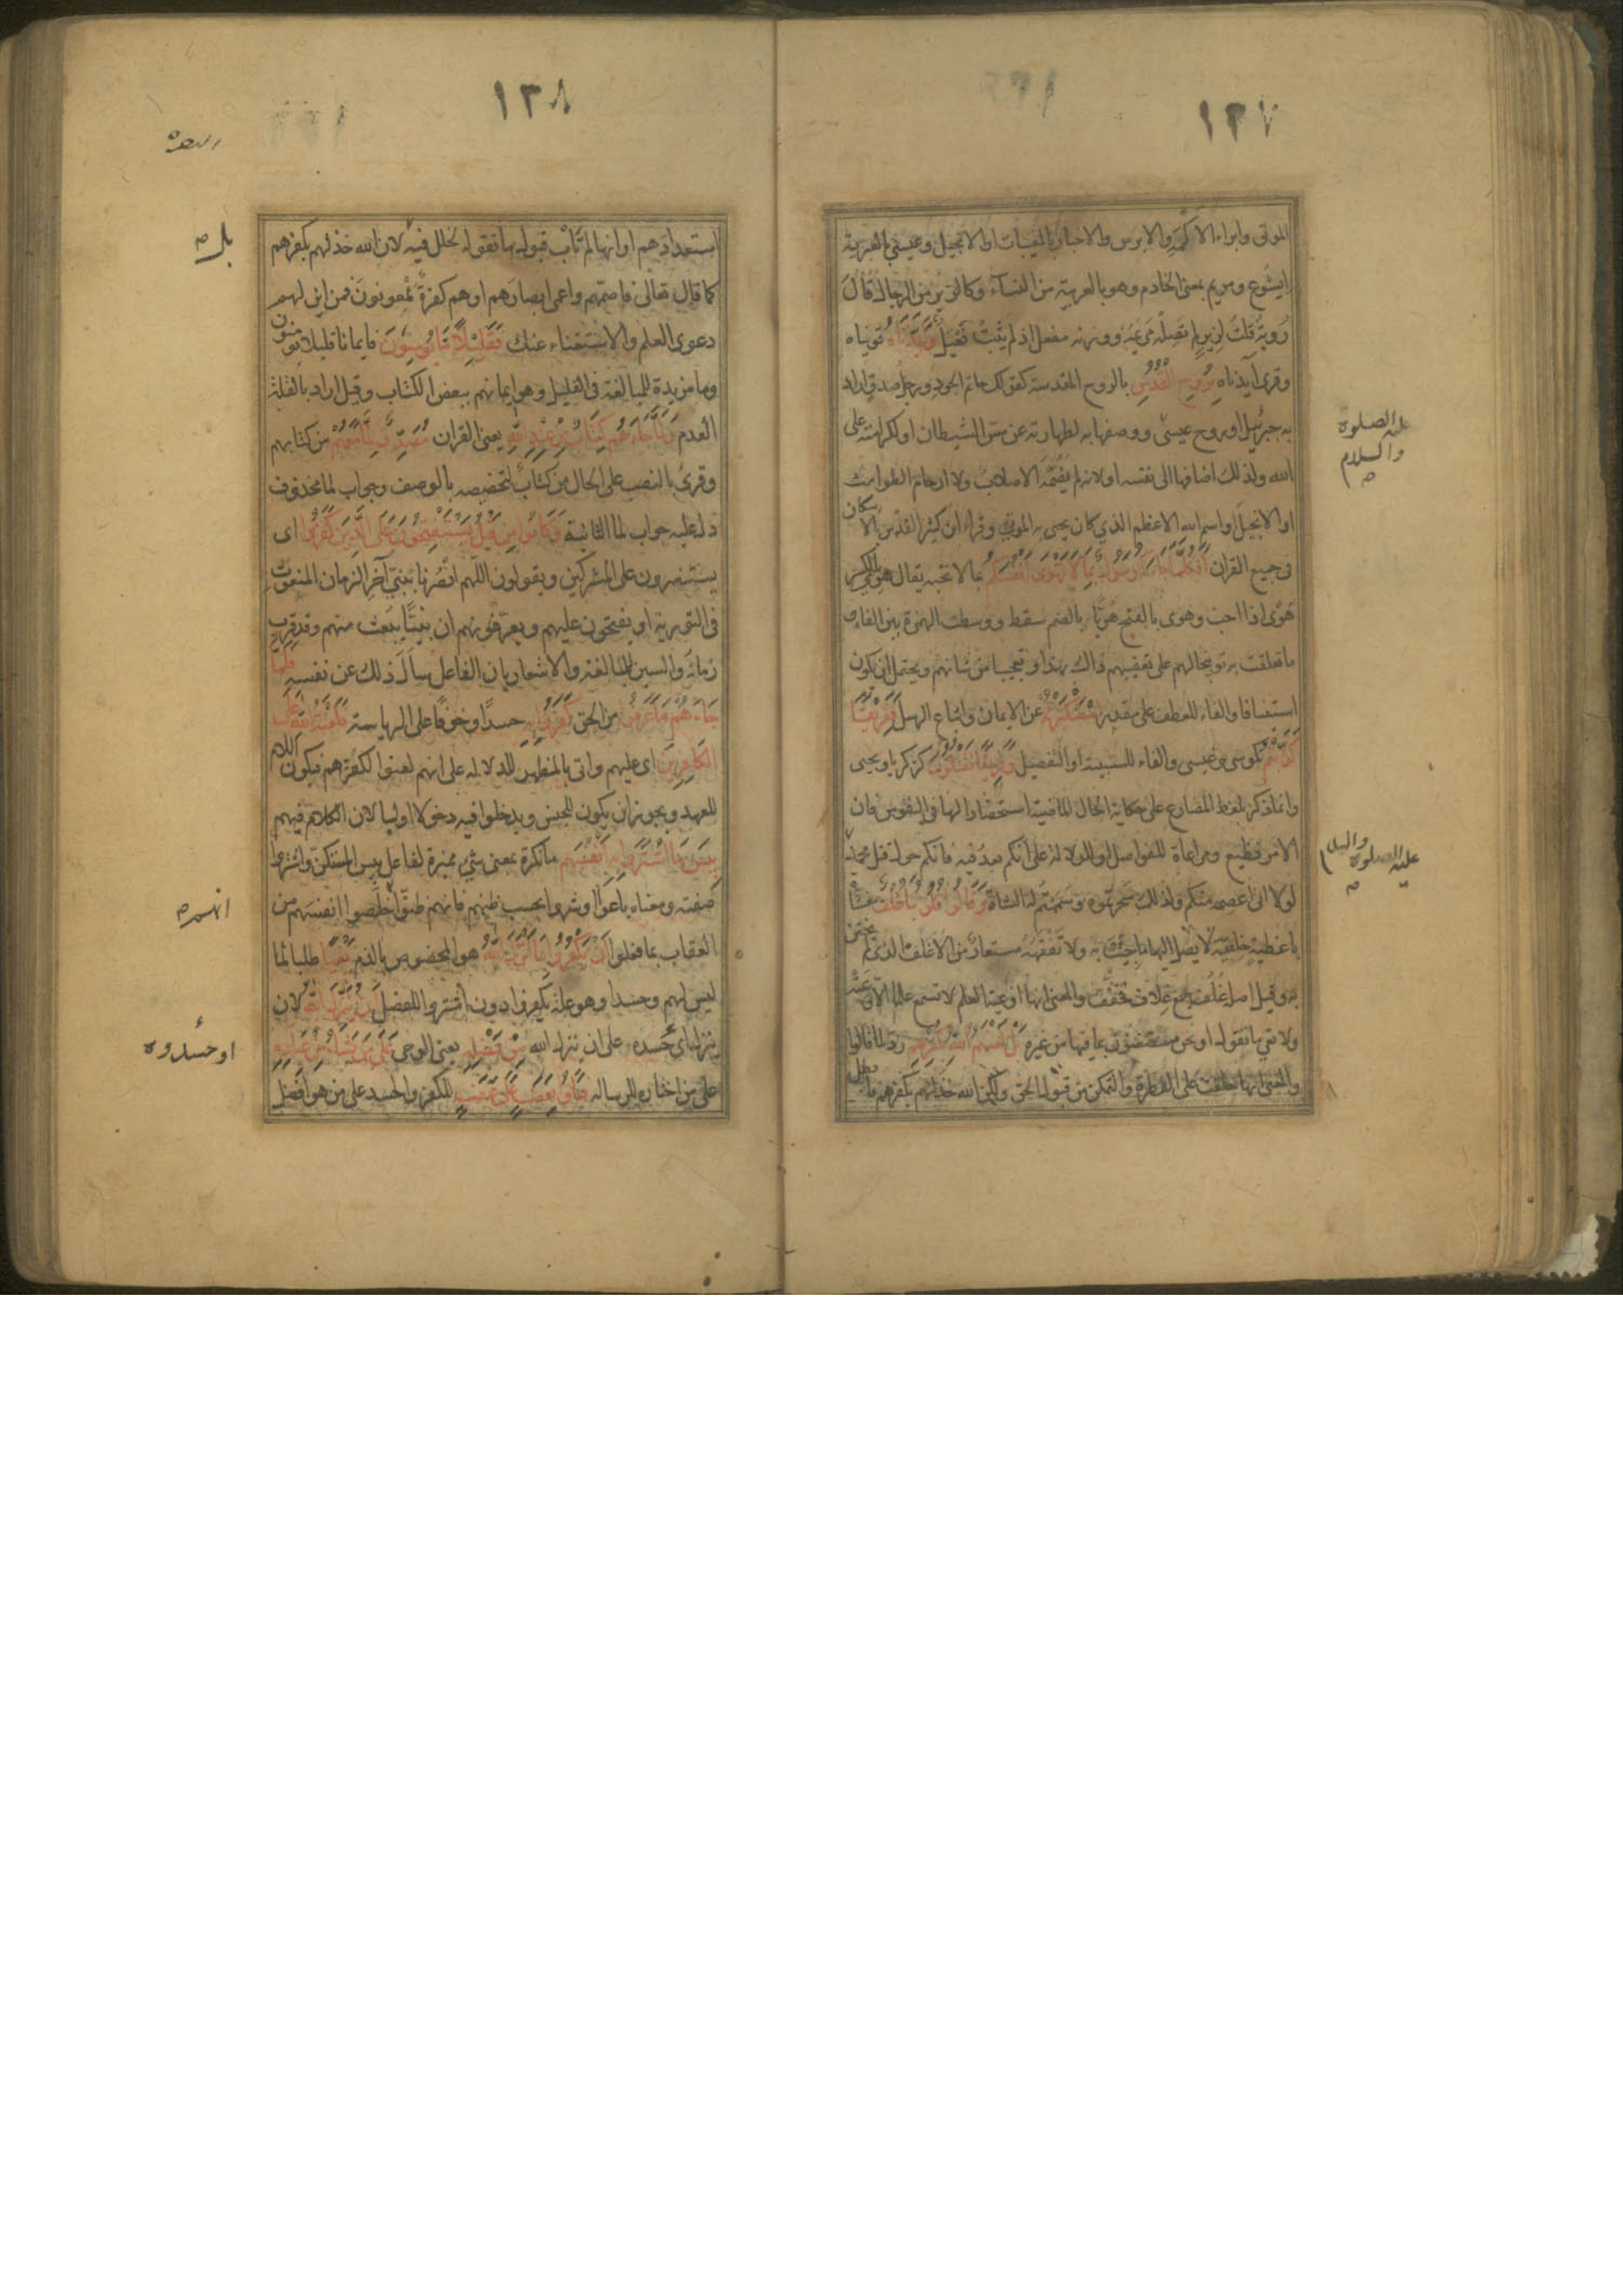 ١٣٧
الموتى وابراء الاكمه والابرص والاخبار بالمغيبات او الانجيل وعيسى بالعبرية
ايشوع ومريم بمعنى الخادم وهو بالعربية من النساء كالزير من الرجال قال
رؤبة قلت لزير لم تصله مريمه ووزنه مفعل اذ لم يثبت فعيل وايدناه قويناه
وقرئ آيدناه بروح القدس بالروح المقدسة كقولك حاتم الجود ورجل صدق اراد
به جبرئيل او روح عيسى ووصفها به لطهارته عن مس الشيطان او لكرامته على
الله ولذلك اضافها الى نفسه او لانه لم يضمه الاصلاب ولا ارحام الطوامث
او الانجيل او اسم الله الاعظم الذي كان يحيى به الموتى وقراء ابن كثير القدس بالاسكان
في جميع القران افكلما جاءكم رسول بما لا تهوى انفسكم بما لا تحبه يقال هوى بالكسر
هوى اذا احب وهوى بالفتح هويا بالضم سقط ووسطت الهمزة بين الفاء و
ما تعلقت به توبيخا لهم على تعقيبهم ذاك بهذا وتعجيبا من شانهم ويحتمل ان يكون
استينافا والفاء للعطف على مقدر استكبرتم عن الايمان واتباع الرسل ففريقا
كذبتم كموسى وعيسى والفاء للسببية او التفصيل وفريقا تقتلون كزكريا ويحيى
وانما ذكر بلفظ المضارع على حكاية الحال الماضية استحضارا لها في النفوس فان
الامر فظيع ومراعاة للفواصل او للدلالة على انكم بعد فيه فانكم حول قتل محمد
عليه الصلوة والسلام
لولا انى اعصمه منكم ولذلك سحرتموه وسممتم له الشاة وقالوا قلوبنا غلف مغشاة
باغطية خلقية لا يصل اليها ما جئت به ولا تفقهه مستعار من الاغلف الذى لم يختن
به وقيل اصله غلف جمع غلاف فخفف والمعنى انها اوعية العلم لا تسمع علما الا وعته
ولا تعي ما تقول او نحن مستغنون بما فيها من غيره بل لعنهم الله بكفرهم رد لما قالوا
والمعنى انها خلقت على الفطرة والتمكن من قبول الحق ولكن الله خذلهم بكفرهم فابطل
عليه الصلوة
والسلام
١٣٨
البقره
استعدادهم او انها لم تأب قبول ما تقوله لخلل فيه لان الله خذلهم بكفرهم
بل
كما قال تعالى فاصمهم واعمى ابصارهم او هم كفرة ملعونون فمن اين لهم
دعوى العلم والاستغناء عنك فقليلا ما يؤمنون فايمانا قليلا يؤمنون
وما مزيدة للمبالغة في القليل وهو ايمانهم ببعض الكتاب وقيل اراد بالقلة
العدم ولما جاءهم كتاب من عند الله يعنى القران مصدق لما معهم من كتابهم
وقرئ بالنصب على الحال من كتاب لتخصصه بالوصف وجواب لما محذوف
دل عليه جواب لما الثانية وكانوا من قبل يستفتحون على الذين كفروا اى
يستنصرون على المشركين ويقولون اللهم انصرنا بنبي آخر الزمان المنعوت
في التورية او يفتحون عليهم ويعرفونهم ان نبيا يبعث منهم وقد قرب
زمانه والسين للمبالغة والاشعار بان الفاعل يسأل ذلك عن نفسه فلما
جاءهم ما عرفوا من الحق كفروا به حسدا وخوفا على الرياسة فلعنة الله على
الكافرين اى عليهم واتى بالمظهر للدلالة على انهم لعنوا لكفرهم فيكون اللام
للعهد ويجوز ان يكون للجنس ويدخلوا فيه دخولا اوليا لان الكلام فيهم
بئس ما اشتروا به انفسهم ما نكرة بمعنى شئ مميزة لفاعل بئس المستكن واشتروا
صفته ومعناه باعوا او شروا بحسب ظنهم فانهم ظنوا انهم خلصوا انفسهم من
انهم
العقاب بما فعلوا ان يكفروا بما انزل الله هو المخصوص بالذم بغيا طلبا لما
ليس لهم وحسدا وهو علة يكفروا دون اشتروا للفصل ان ينزل الله لان
ينزل اى حسده على ان ينزل الله من فضله يعنى الوحى على من يشاء من عباده
او حسدوه
على من اختاره للرسالة فباؤا بغضب على غضب للكفر والحسد على من هو افضل